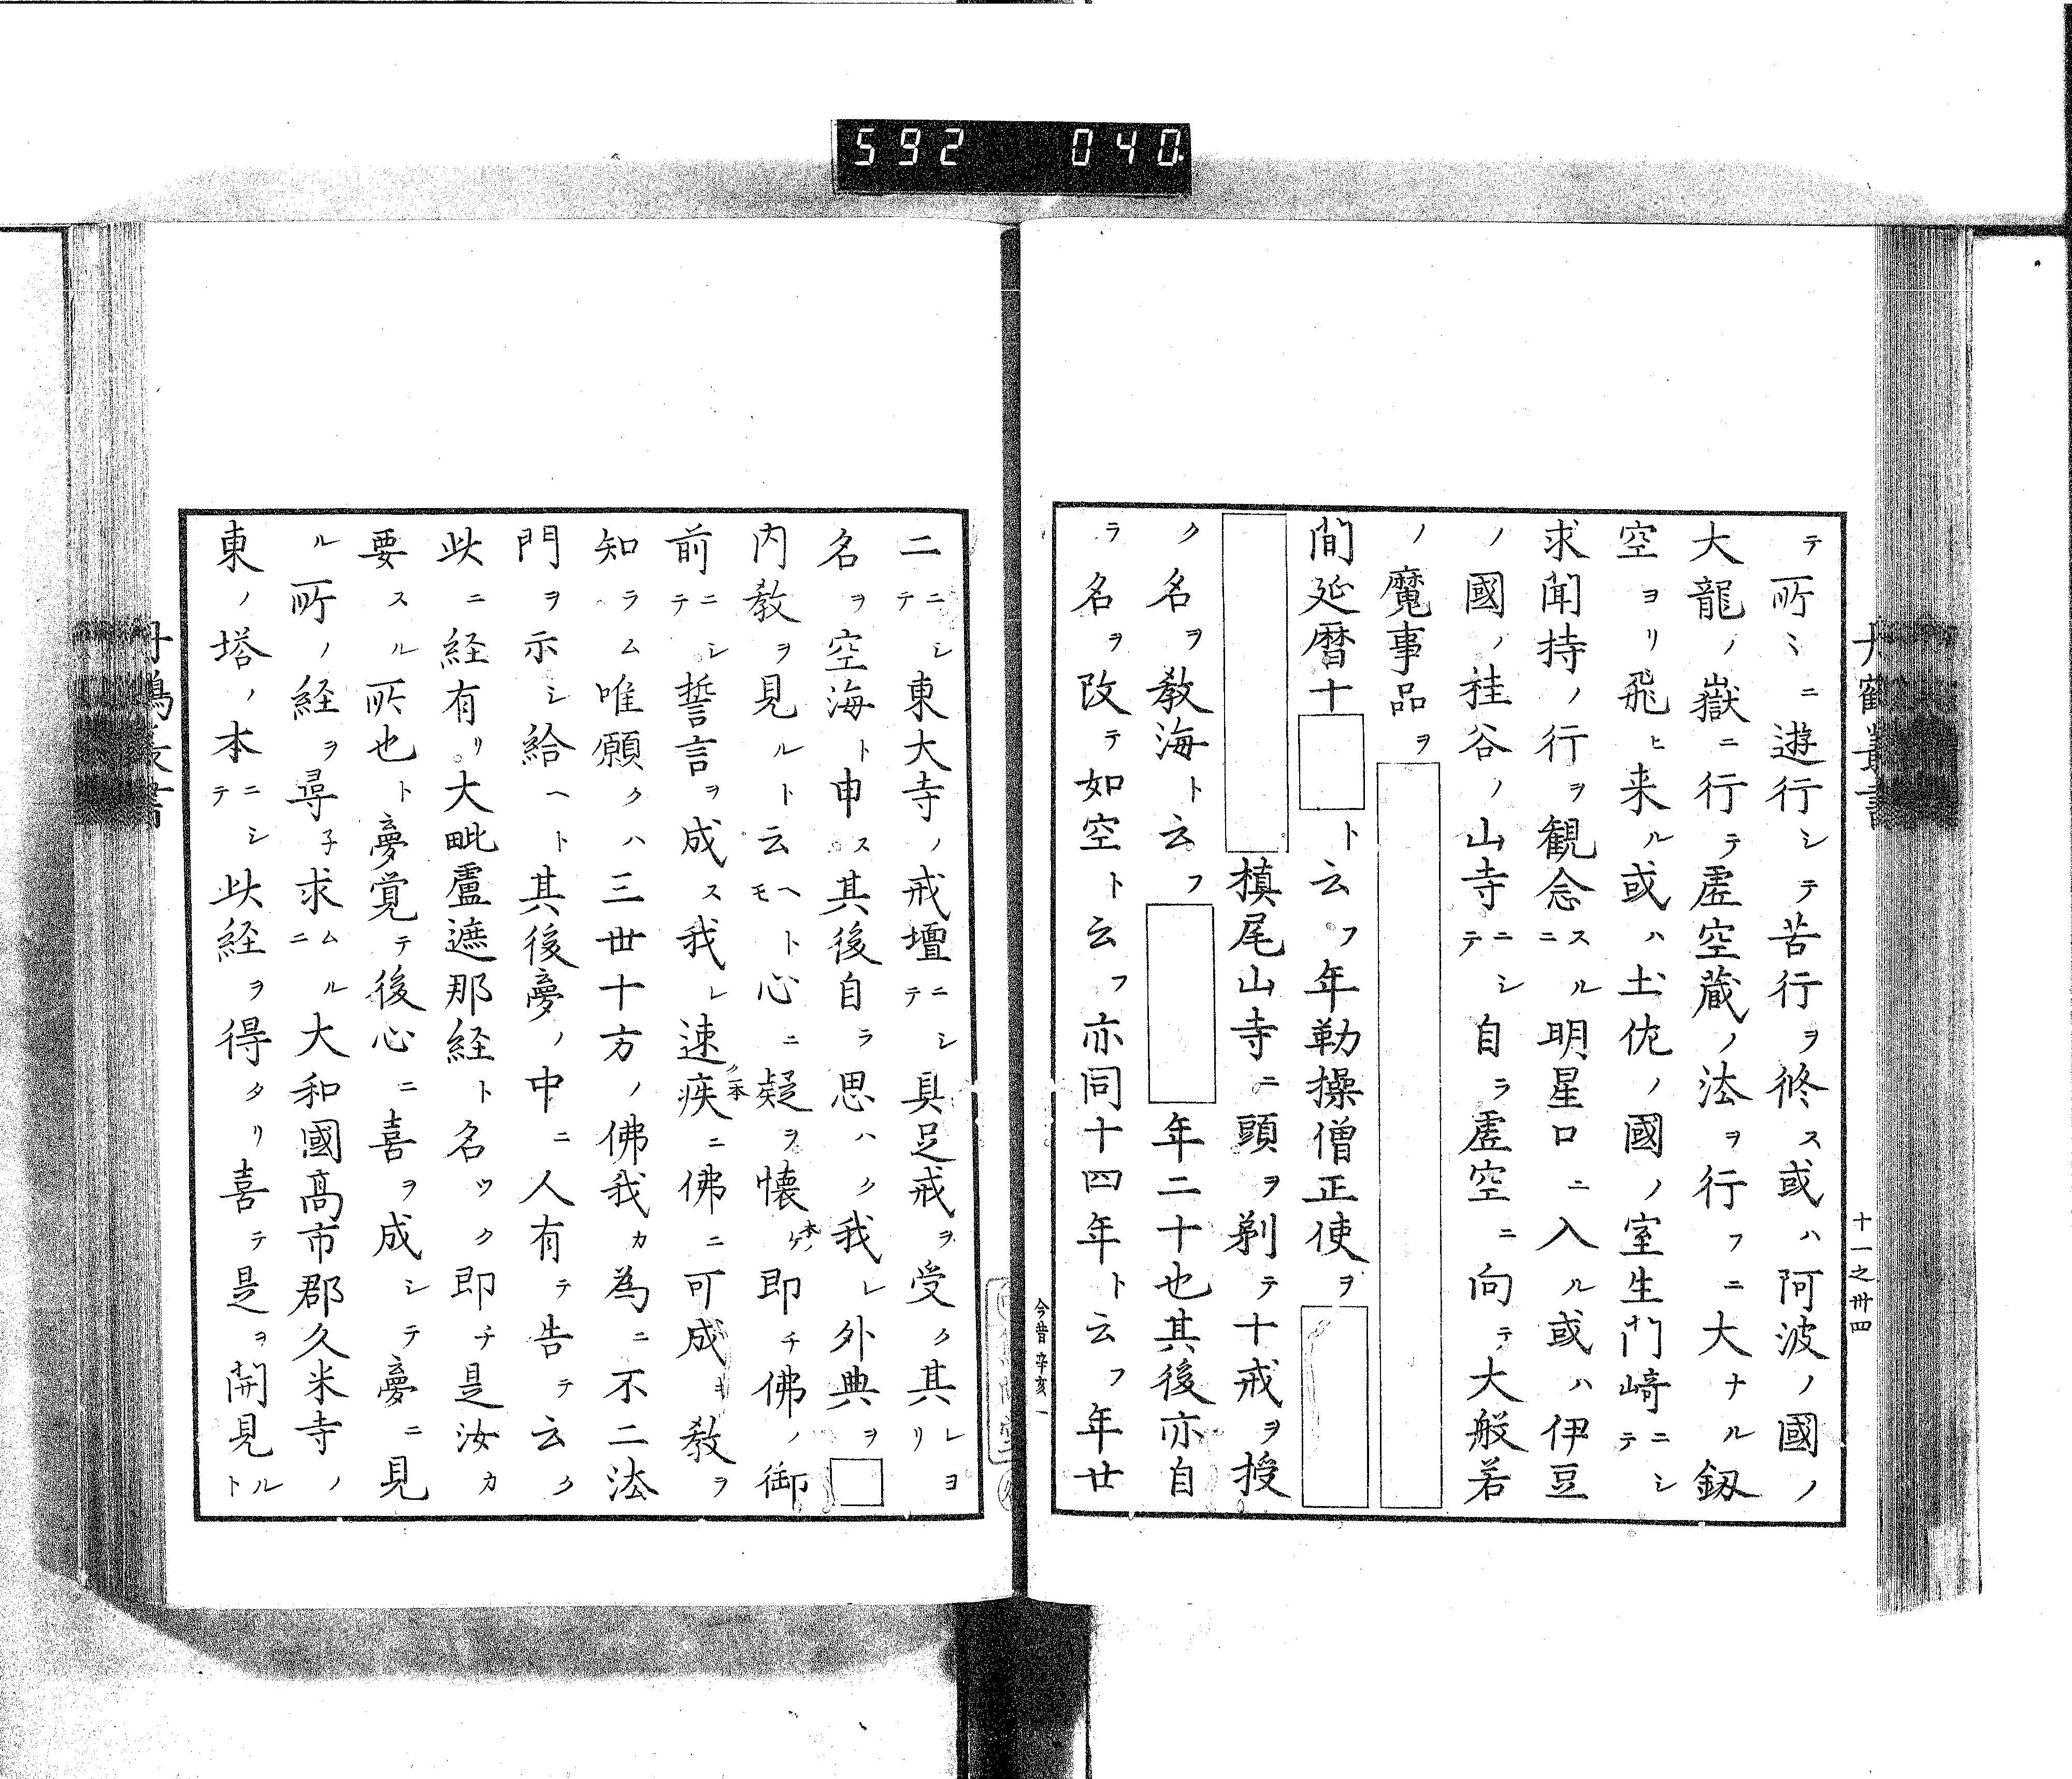 592 040
十一之卅四
テ所ミニ遊行シテ苦行ヲ修ス或ハ阿波ノ國ノ
大龍ノ嶽ニ行テ虚空蔵ノ法ヲ行フニ大ナル釼
空ヨリ飛ヒ来ル或ハ土佐ノ國ノ室生門崎ニシテ
求聞持ノ行ヲ観念スルニ明星口ニ入ル或ハ伊豆
ノ國ノ桂谷ノ山寺ニシテ自ラ虚空ニ向テ大般若
ノ魔事品ヲ
間延暦十□ト云フ年勤操僧正使ヲ□
□槙尾山寺ニ頭ヲ剃テ十戒ヲ授
ク名ヲ教海ト云フ□年二十也其後亦自
ラ名ヲ改テ如空ト云フ亦同十四年ト云フ年廿
今昔 辛亥一
二ニシテ東大寺ノ戒壇ニシテ具足戒ヲ受ク其レヨリ
名ヲ空海ト申ス其後自ラ思ハク我レ外典ヲ□
内教ヲ見ルト云ヘトモ心ニ疑ヲ懐ケ本ノ即チ佛ノ御
前ニシテ誓言ヲ成ス我レ速疾ニ佛ニ可成キ教ヲ
知ラム唯願クハ三世十方ノ佛我カ為ニ不二法
門ヲ示シ給ヘト其後夢ノ中ニ人有テ告テ云ク
此ニ経有リ大毗盧遮那経ト名ツク即チ是汝カ
要スル所也ト夢覚テ後心ニ喜ヲ成シテ夢ニ見
ル所ノ経ヲ尋子求ムルニ大和國髙市郡久米寺ノ
東ノ塔ノ本ニシテ此経ヲ得タリ喜テ是ヲ開見ルト